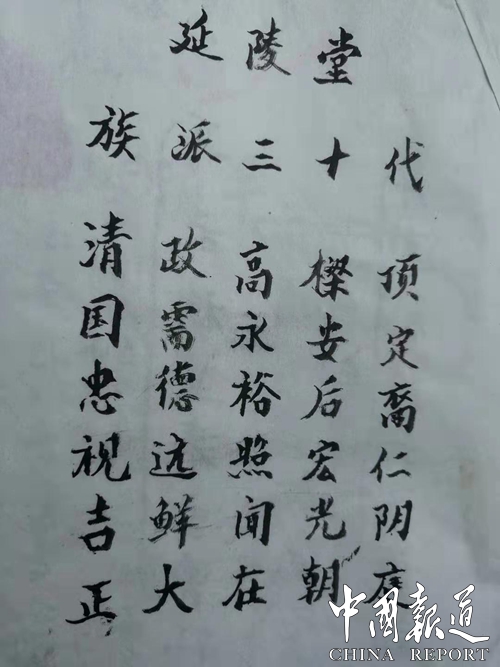 延陵堂
族派三十代
清政高樑顶
国需永安定
忠德裕后裔
视远照宏仁
吉鲜闻光阴
正大在朝庭
中國報道
CHINA REPORT